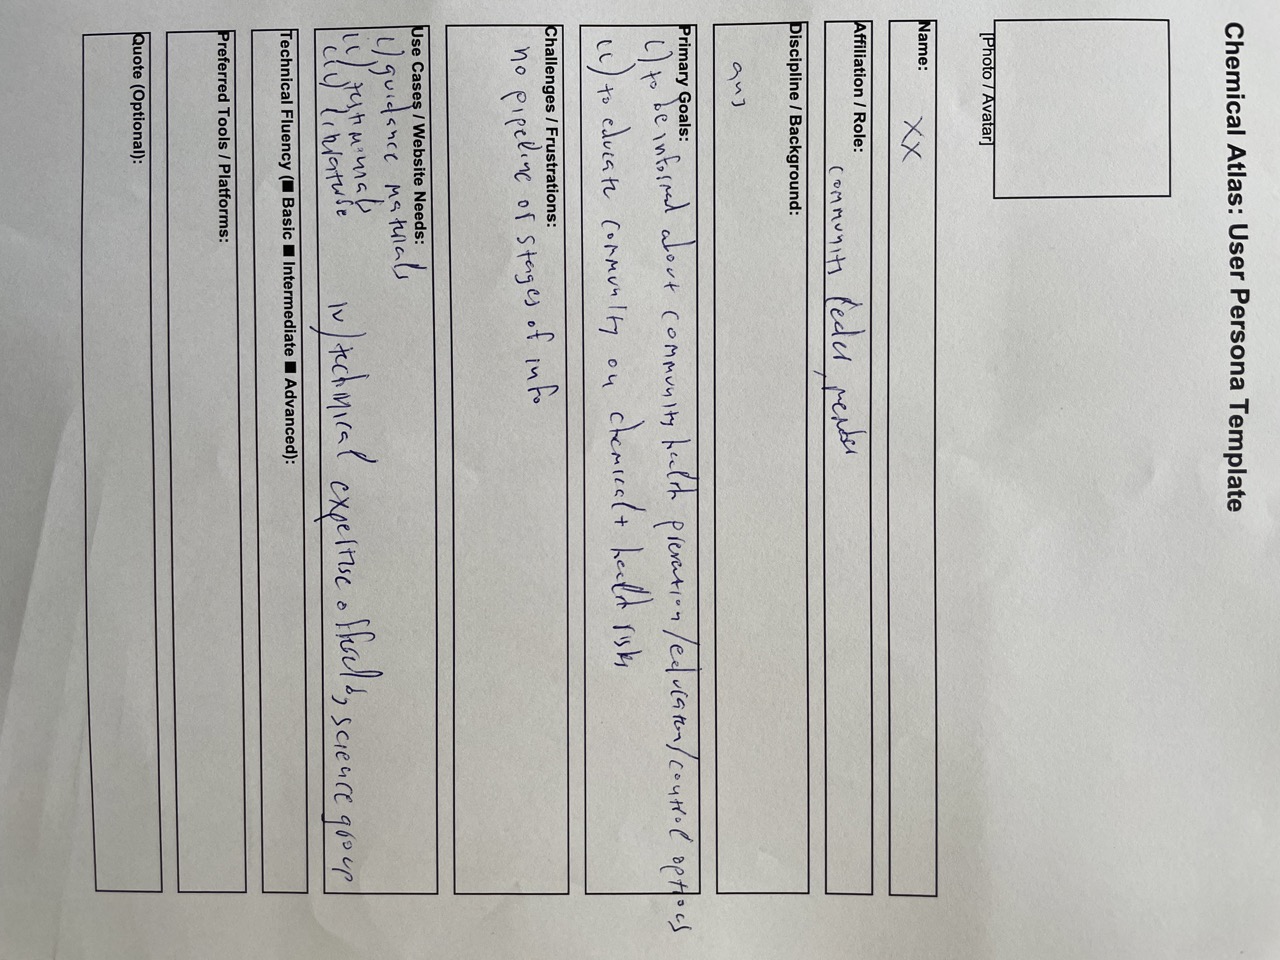 Chemical Atlas: User Persona Template
[Photo / Avatar]
Name: XX
Affiliation / Role:
community leader, member
Discipline / Background:
any
Primary Goals:
i) to be informed about community health prevention/education/control options
ii) to educate community on chemical + health risks
Challenges / Frustrations:
no pipeline or stages of info
Use Cases / Website Needs:
i) guidance materials
ii) testimonials
iii) literature
iv) technical expertise offered by science group
Technical Fluency (■ Basic ■ Intermediate ■ Advanced):
Preferred Tools / Platforms:
Quote (Optional):